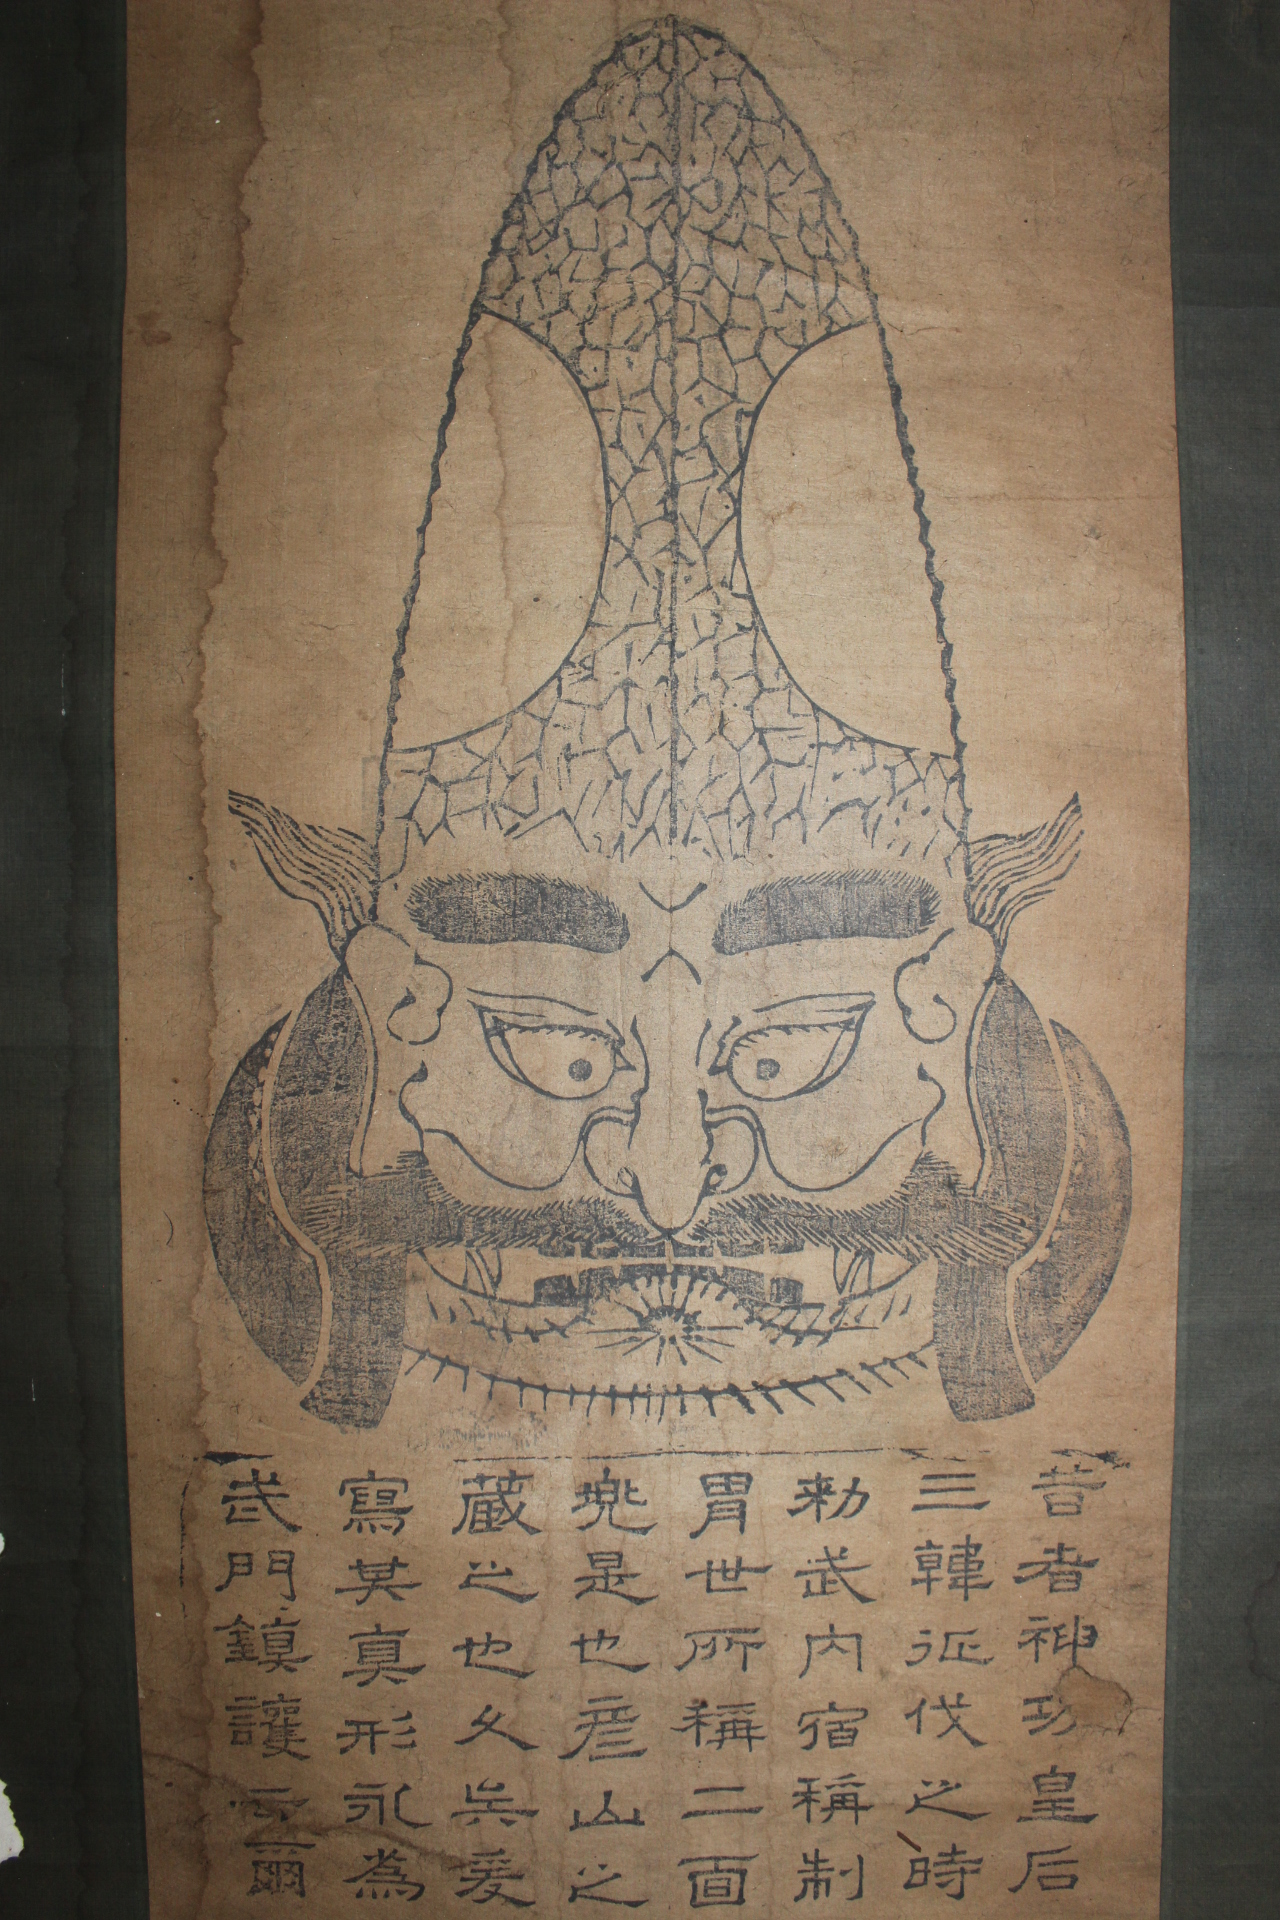 昔者神功皇后
三韓征伐之時
勑武内宿稱制
冑世所稱二面
兜是也彦山之
蔵之也久矣爰
寫其真形永為
武門鎮護云爾